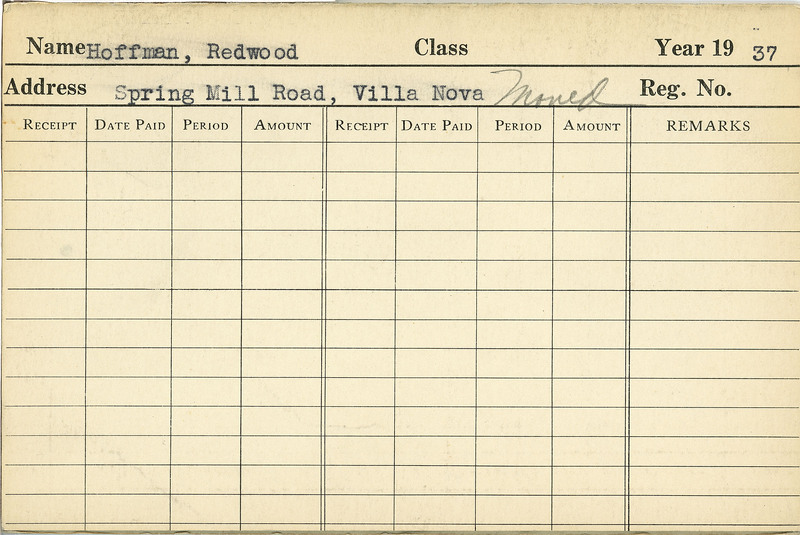 Name Hoffman, Redwood Class Year 19 37
Address Spring Mill Road, Villa Nova Moved Reg. No.
RECEIPT DATE PAID PERIOD AMOUNT RECEIPT DATE PAID PERIOD AMOUNT REMARKS